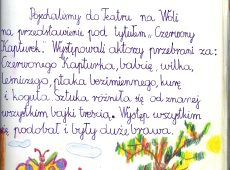 Pojechaliśmy do Teatru na Woli
na przedstawienie pod tytułem „Czerwony
Kapturek". Występowali aktorzy przebrani za:
Czerwonego Kapturka, babcię, wilka,
leśniczego, ptaka bezimiennego, kurę
i koguta. Sztuka różniła się od znanej
wszystkim bajki treścią. Występ wszystkim
się podobał i były duże brawa.